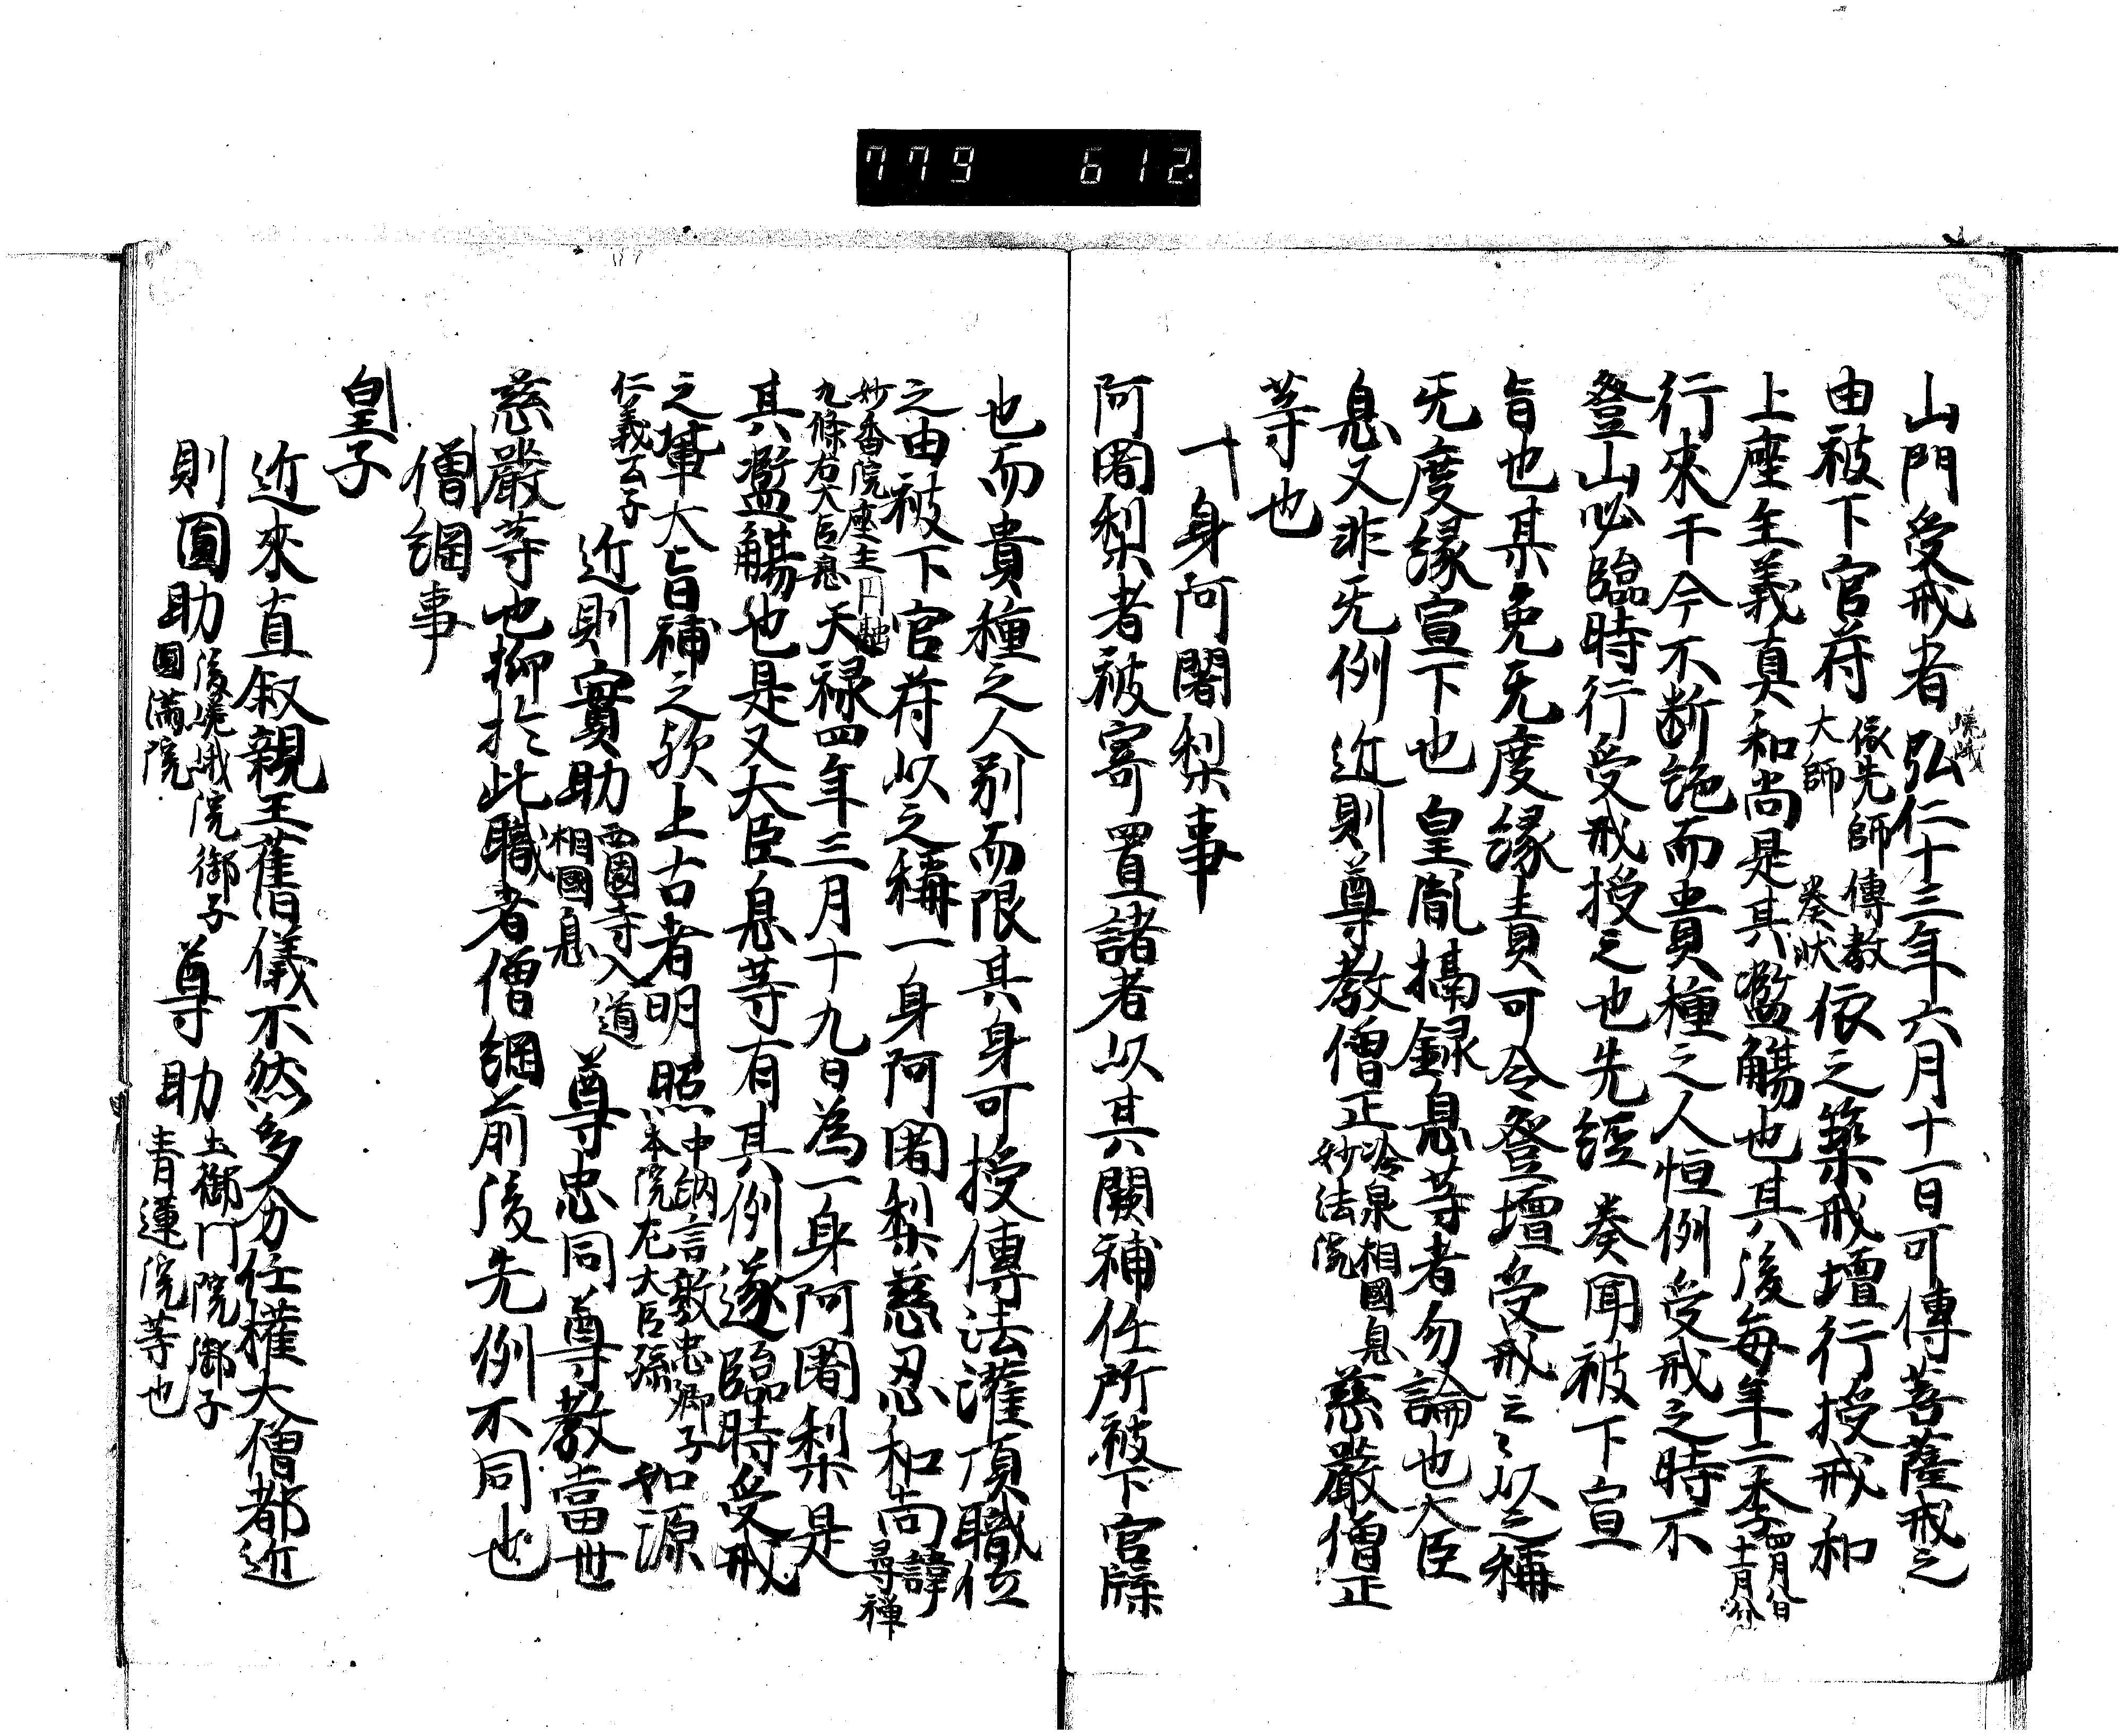 779 612
山門受戒者弘仁十三年六月十一日可傳菩薩戒之
嵯峨
由被下官苻依先師傳教大師奏狀依之築戒壇行授戒和
上座主義真和尚是其濫觴也其後每年二季四月八日十一月八日
行來于今不断絶而貴種之人恒例受戒之時不
登山必臨時行受戒授之也先經奏聞被下宣
旨也某免无度縁責可令登壇受戒云々以之稱
无度縁宣下也皇胤攝録息等者勿論也大臣
息又非无例近則尊教僧正冷泉相國息妙法院慈嚴僧正
等也
一身阿闍梨事
阿闍梨者被寄置諸者以其闕補任所被下官牒
也而貴種之人别而限其身可授傳法灌頂職位
之由被下官苻以之稱一身阿闍梨慈忍和尚諱尋禅
妙香院座主九條右大臣息天禄四年三月十九日為一身阿闍梨是
其濫觴也是又大臣息等有其例遂臨時受戒
之輩大旨補之歟上古者明照中納言敦忠卿子本院左大臣孫如源
仁義公子近則實助西園寺入道相國息尊忠同尊教當世
慈嚴等也抑於此職者僧綱前後先例不同也
僧綱事
皇子
近來直叙親王舊儀不然多分任權大僧都近
則圓助後嵯峨院御子圓滿院尊助土御門院御子青蓮院等也